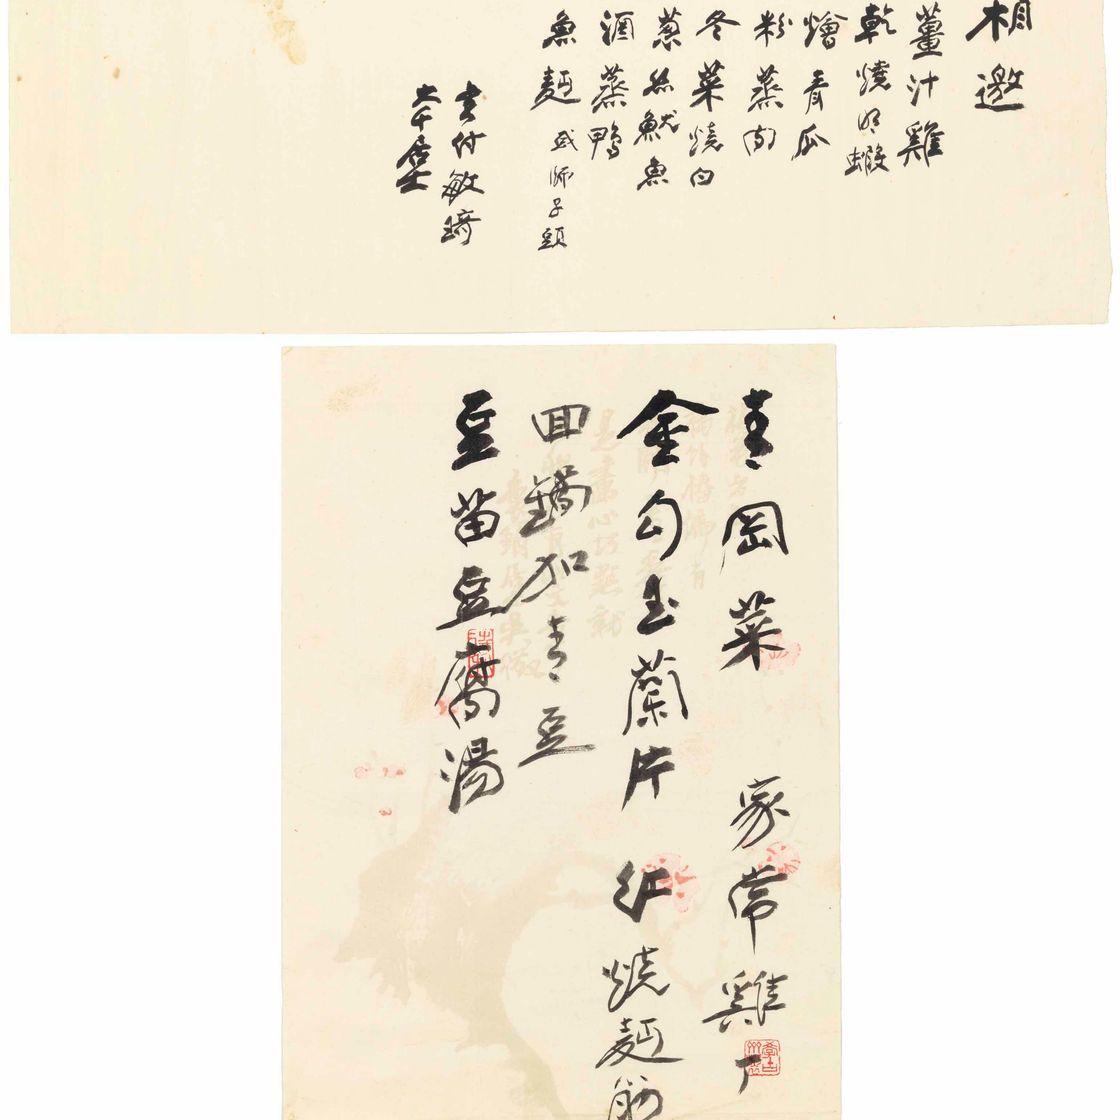 相邀
薑汁雞
乾燒明蝦
燴青瓜
粉蒸肉
冬菜燒白
蔥絲魷魚
酒蒸鴨
魚麵 或獅子頭
書付敏琦
大千居士
青岡菜 家常雞丁
金勾玉蘭片 紅燒麵筋
回鍋加青豆
豆苗豆腐湯